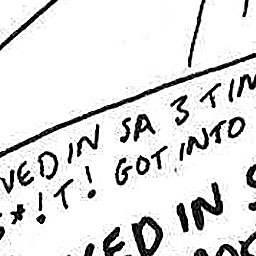 VED IN SA 3 TIM
S*!T! GOT INTO
VED IN S